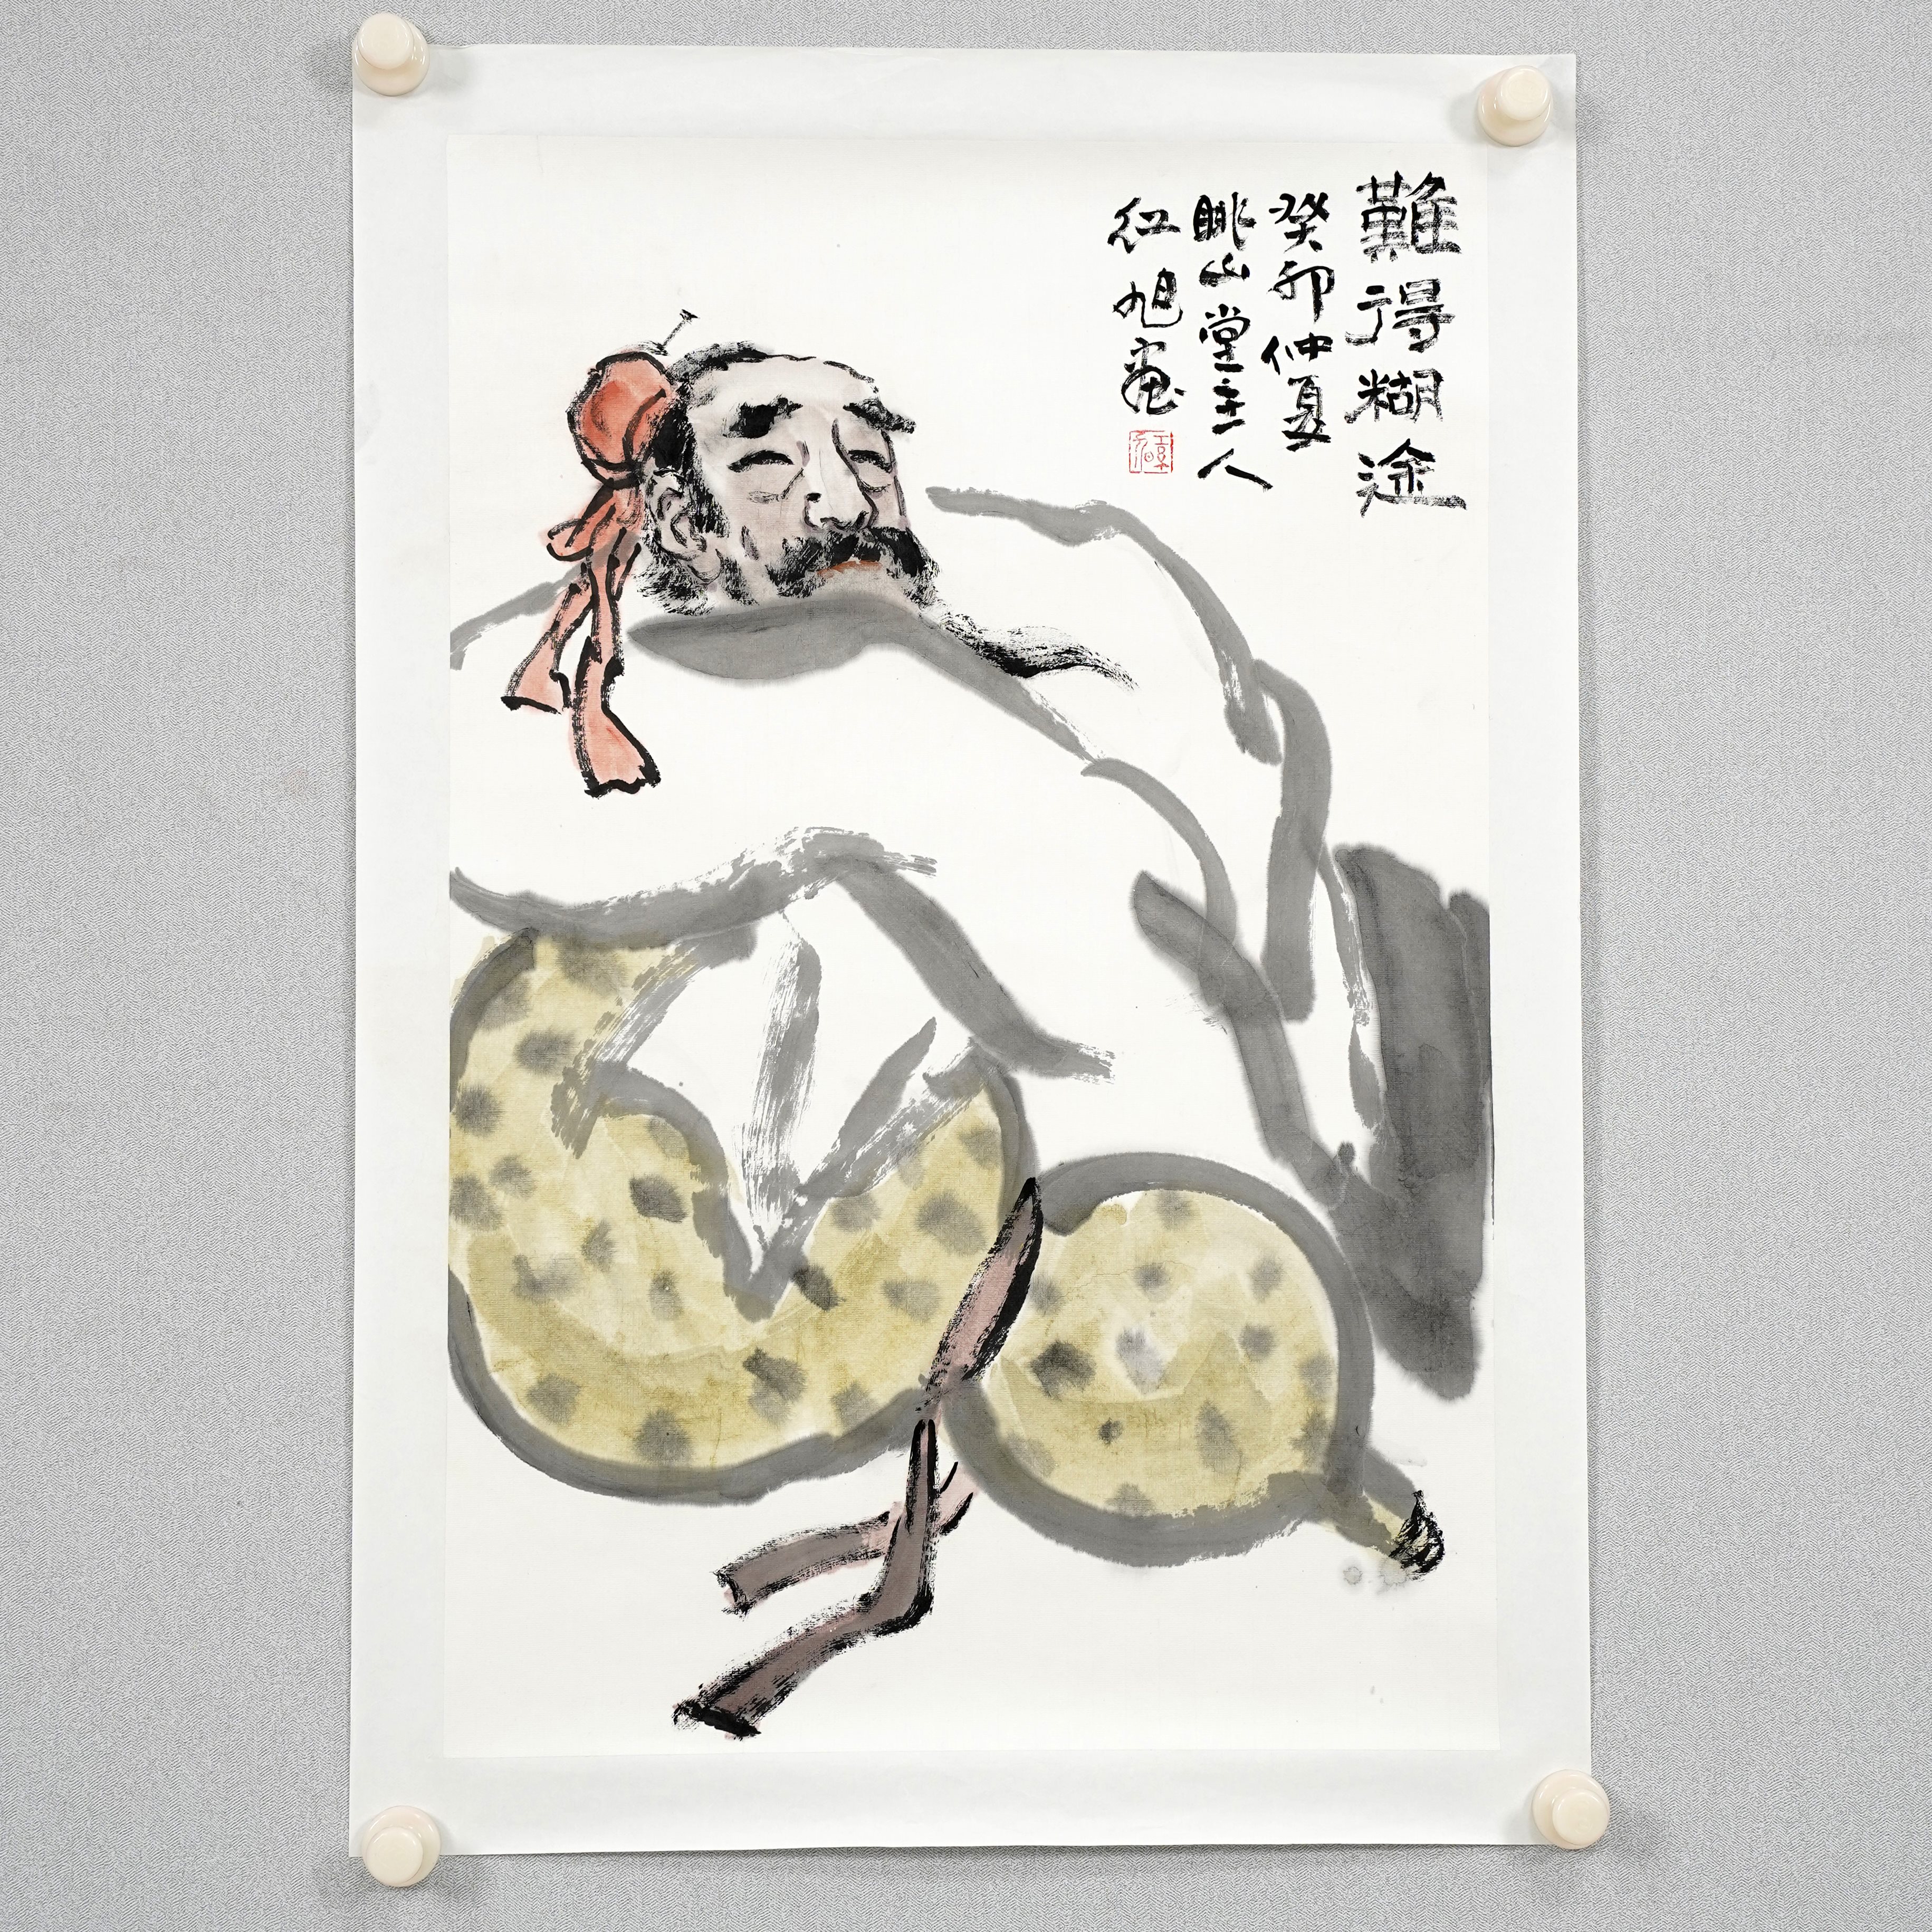 難得糊塗
癸卯仲夏
眺山堂主人
紅旭畫